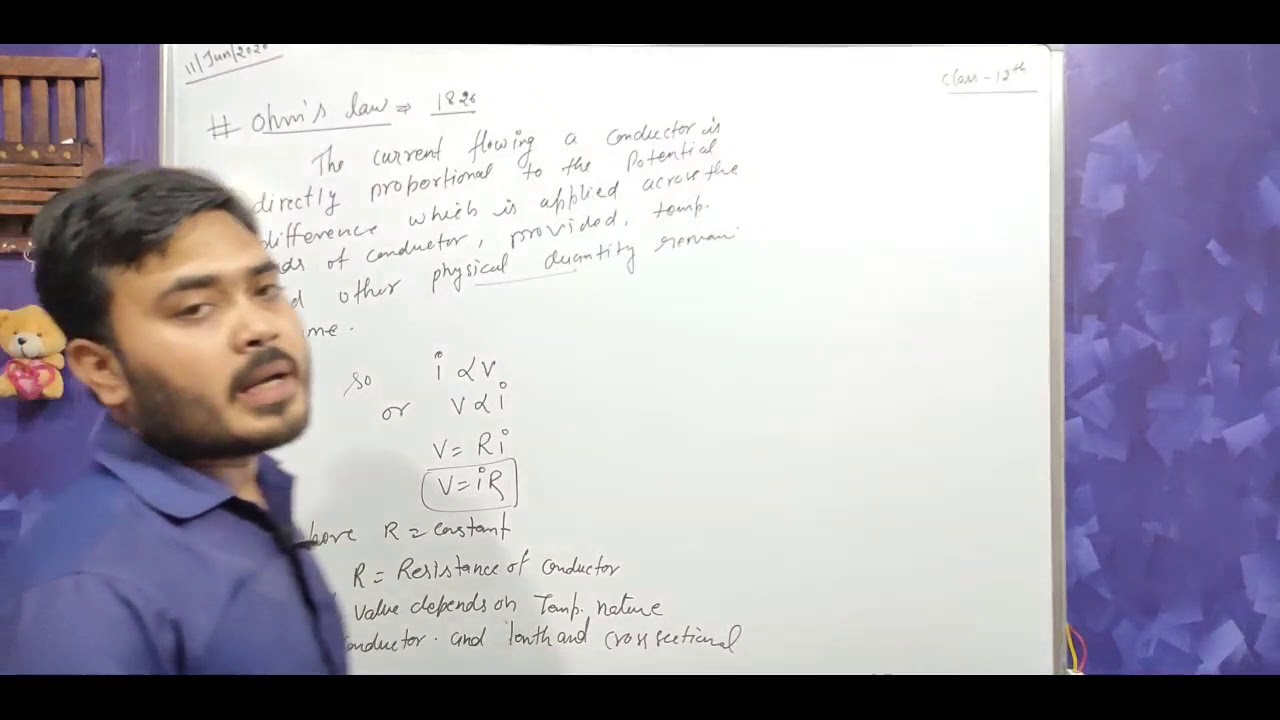 11/Jun/2020
Class - 12th
# Ohm's law ⇒ 1826
The current flowing a conductor is
directly proportional to the Potential
difference which is applied across the
ds of conductor, provided, temp.
d other physical quantity remain
me.
so i ∝ v
or v ∝ i
V = Ri
V = iR
here R = constant
R = Resistance of conductor
value depends on Temp. nature
onductor. and lenth and cross sectional